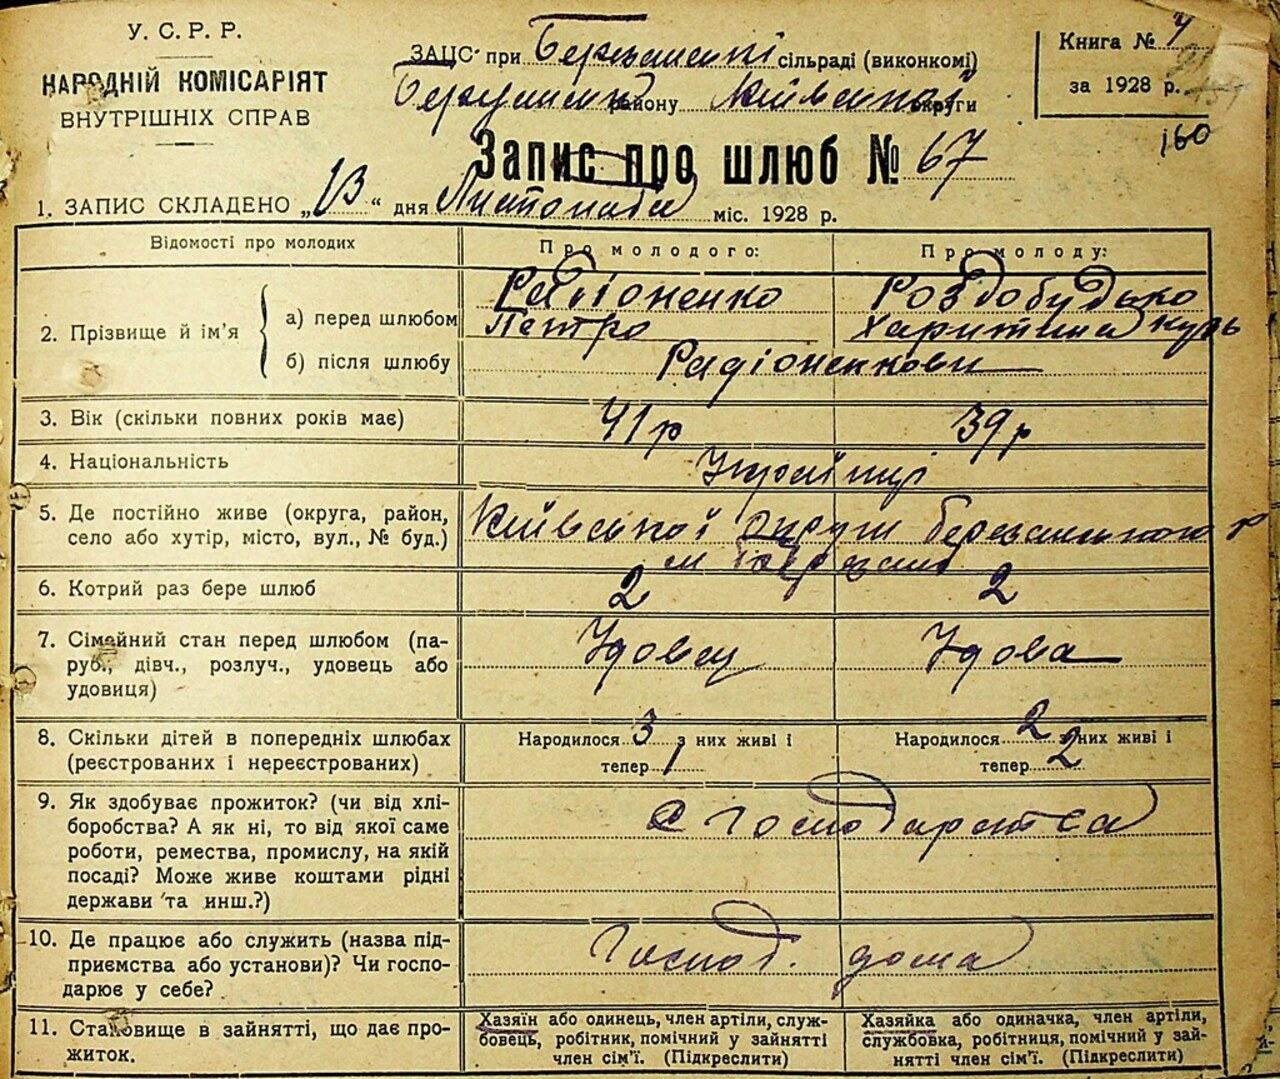 У. С. Р. Р.
НАРОДНІЙ КОМІСАРІЯТ
ВНУТРІШНІХ СПРАВ
ЗАЦС при Березанські сільраді (виконкомі)
району Київської округи
Книга № 4
за 1928 р.
160
Запис про шлюб № 67
1. ЗАПИС СКЛАДЕНО „13“ дня Листопада міс. 1928 р.
Відомості про молодих
Про молодого:
Про молоду:
2. Прізвище й ім'я
а) перед шлюбом
Радіоненко
Петро
Роздобудько
Харитина
б) після шлюбу
Радіоненкови
3. Вік (скільки повних років має)
41 р
39 р
4. Національність
Українці
5. Де постійно живе (округа, район,
село або хутір, місто, вул., № буд.)
Київської округи Березанського р
м Березань
6. Котрий раз бере шлюб
2
2
7. Сімейний стан перед шлюбом (па-
руб., дівч., розлуч., удовець або
удовиця)
Удовец
Удова
8. Скільки дітей в попередніх шлюбах
(реєстрованих і нереєстрованих)
Народилося 3 з них живі і
тепер 1
Народилося 2 з них живі і
тепер 2
9. Як здобуває прожиток? (чи від хлі-
боробства? А як ні, то від якої саме
роботи, ремества, промислу, на якій
посаді? Може живе коштами рідні
держави та инш.?)
С господарства
10. Де працює або служить (назва під-
приємства або установи)? Чи госпо-
дарює у себе?
Господ. дома
11. Становище в зайнятті, що дає про-
житок.
Хазяїн або одинець, член артіли, служ-
бовець, робітник, помічний у зайнятті
член сім'ї. (Підкреслити)
Хазяйка або одиначка, член артіли,
службовка, робітниця, помічний у зай-
нятті член сім'ї. (Підкреслити)